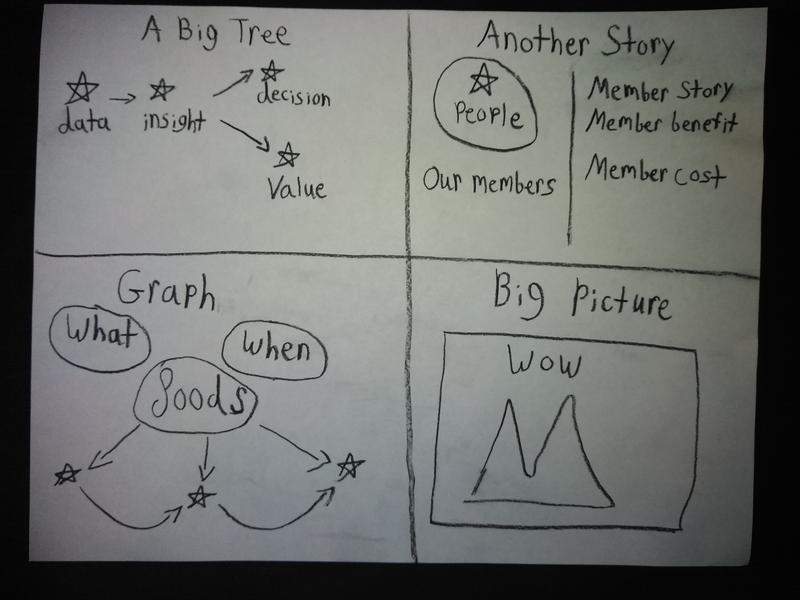 A Big Tree
data
insight
decision
Value
Another Story
People
Our members
Member Story
Member benefit
Member cost
Graph
What
When
Goods
Big Picture
WOW